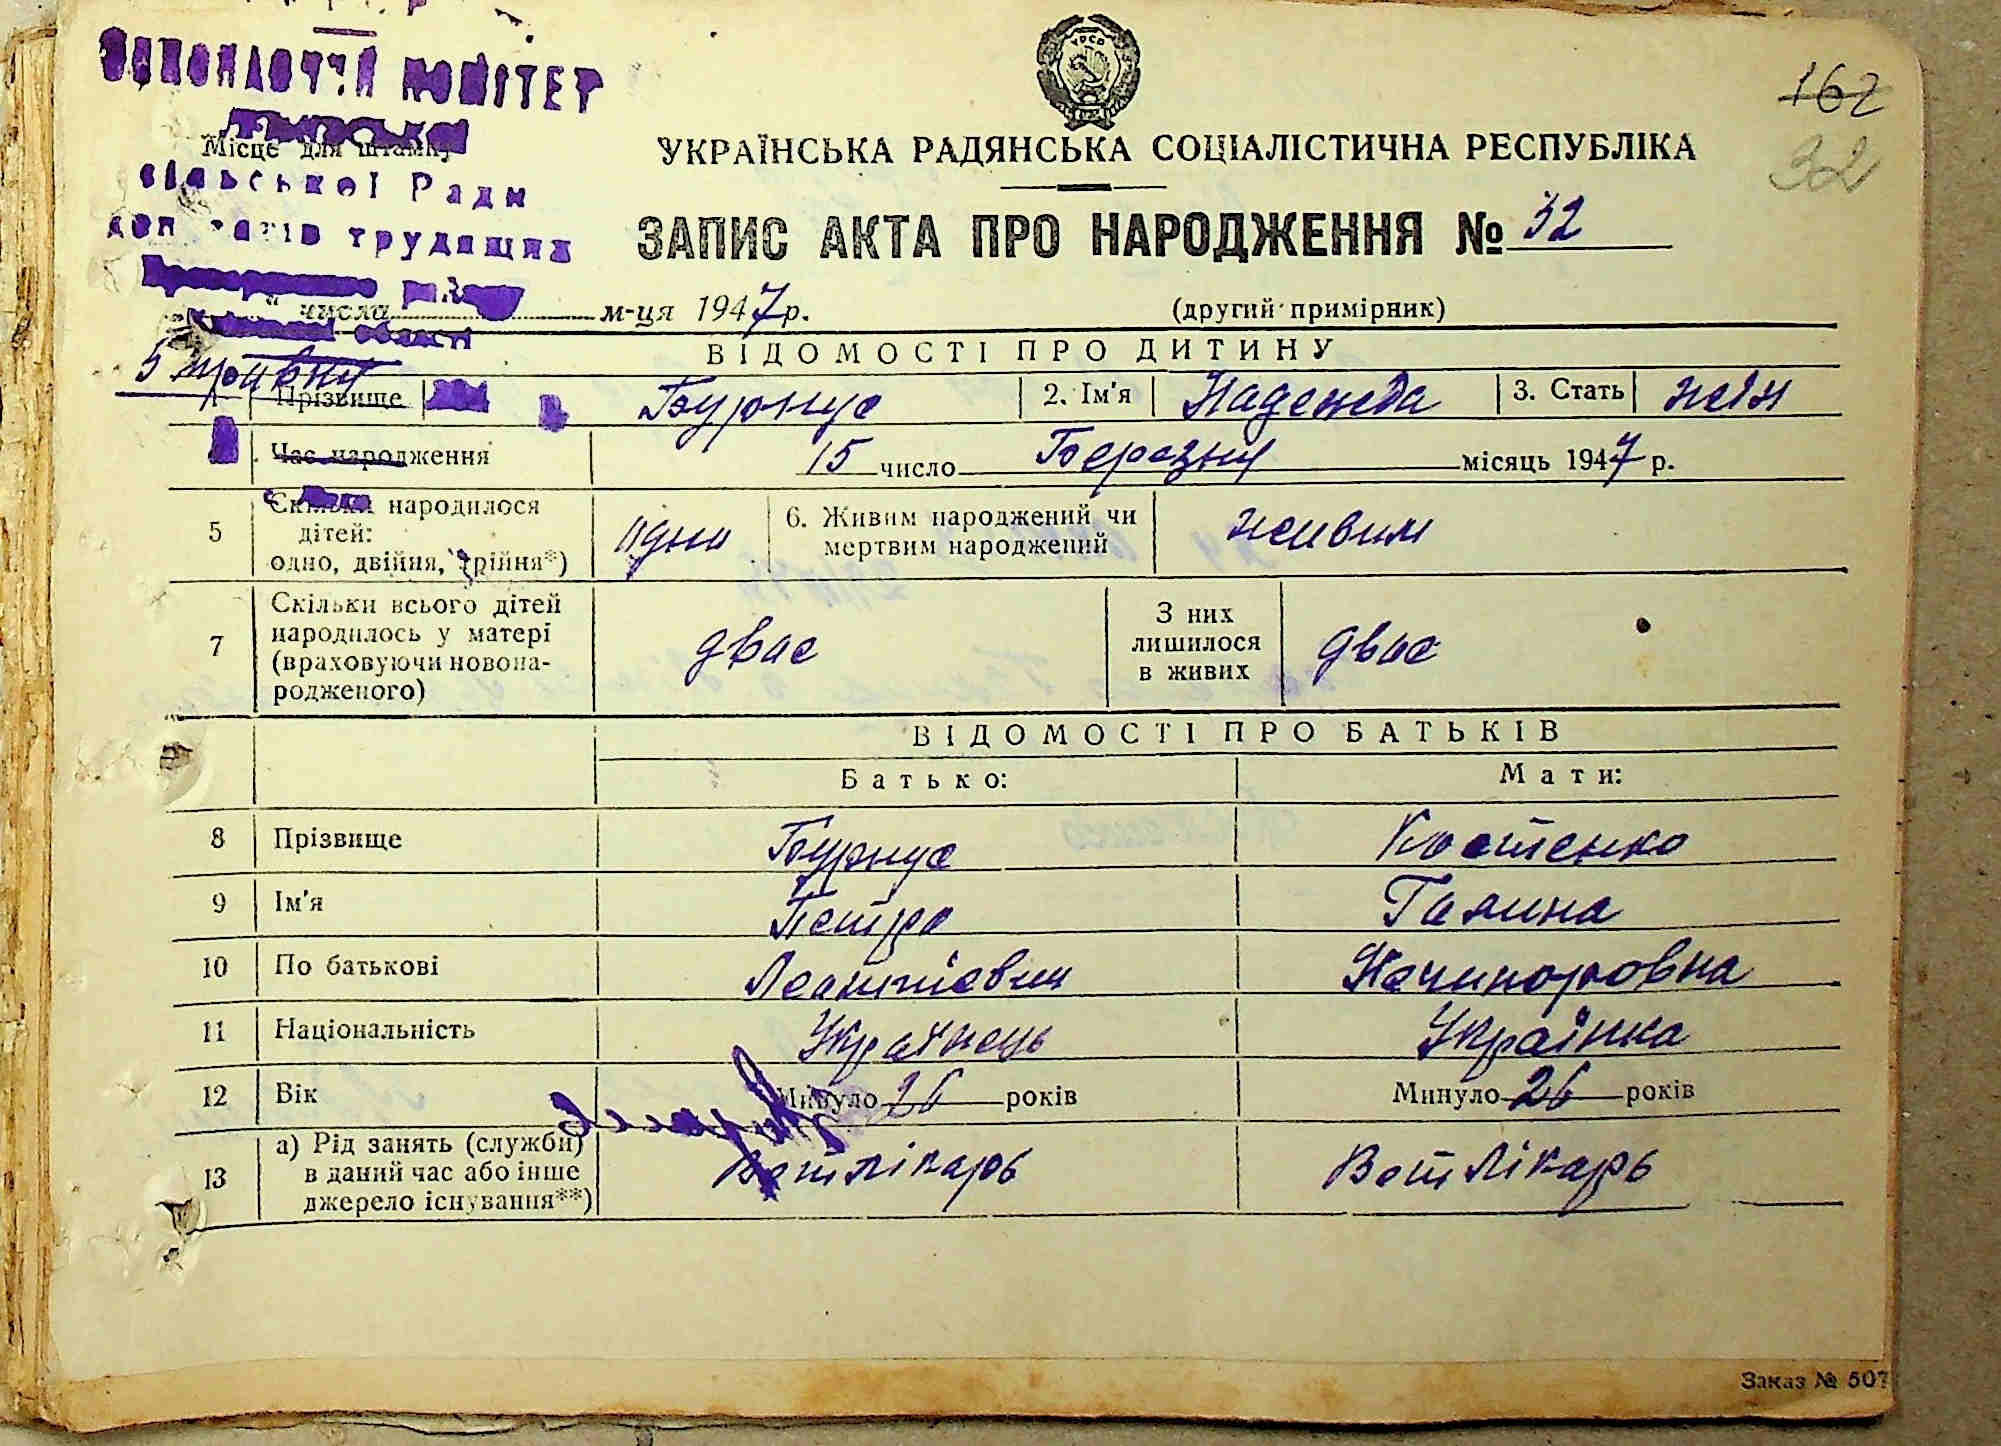 УРСР
162
32
ВИКОНАВЧИЙ КОМІТЕТ
Місце для штампу
сільської Ради
деп татів трудящих
області
УКРАЇНСЬКА РАДЯНСЬКА СОЦІАЛІСТИЧНА РЕСПУБЛІКА
ЗАПИС АКТА ПРО НАРОДЖЕННЯ № 32
числа м-ця 1947 р. (другий примірник)
5 травня
ВІДОМОСТІ ПРО ДИТИНУ
Прізвище Бурнус 2. Ім'я Надежда 3. Стать жін
Час народження 15 число Березня місяць 1947 р.
5 Скільки народилося дітей: одно, двійня, трійня*) одна 6. Живим народжений чи мертвим народжений живим
7 Скільки всього дітей народилось у матері (враховуючи новонародженого) двое З них лишилося в живих двое
ВІДОМОСТІ ПРО БАТЬКІВ
Батько: Мати:
8 Прізвище Бурнус Костенко
9 Ім'я Петро Галина
10 По батькові Леонтіевич Нечипоровна
11 Національність Українець Українка
12 Вік Минуло 26 років Минуло 26 років
13 а) Рід занять (служби) в даний час або інше джерело існування**) Ветлікарь Ветлікарь
Заказ № 507